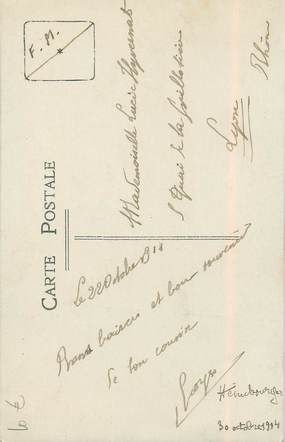 F. M.
CARTE POSTALE
Mademoiselle Lucie
Quai de la Guillotière
Lyon
Rhône
Le 22 Octobre 1914
Bons baisers et bon souvenir
Te bon cousin
30 octobre 1914
10 €